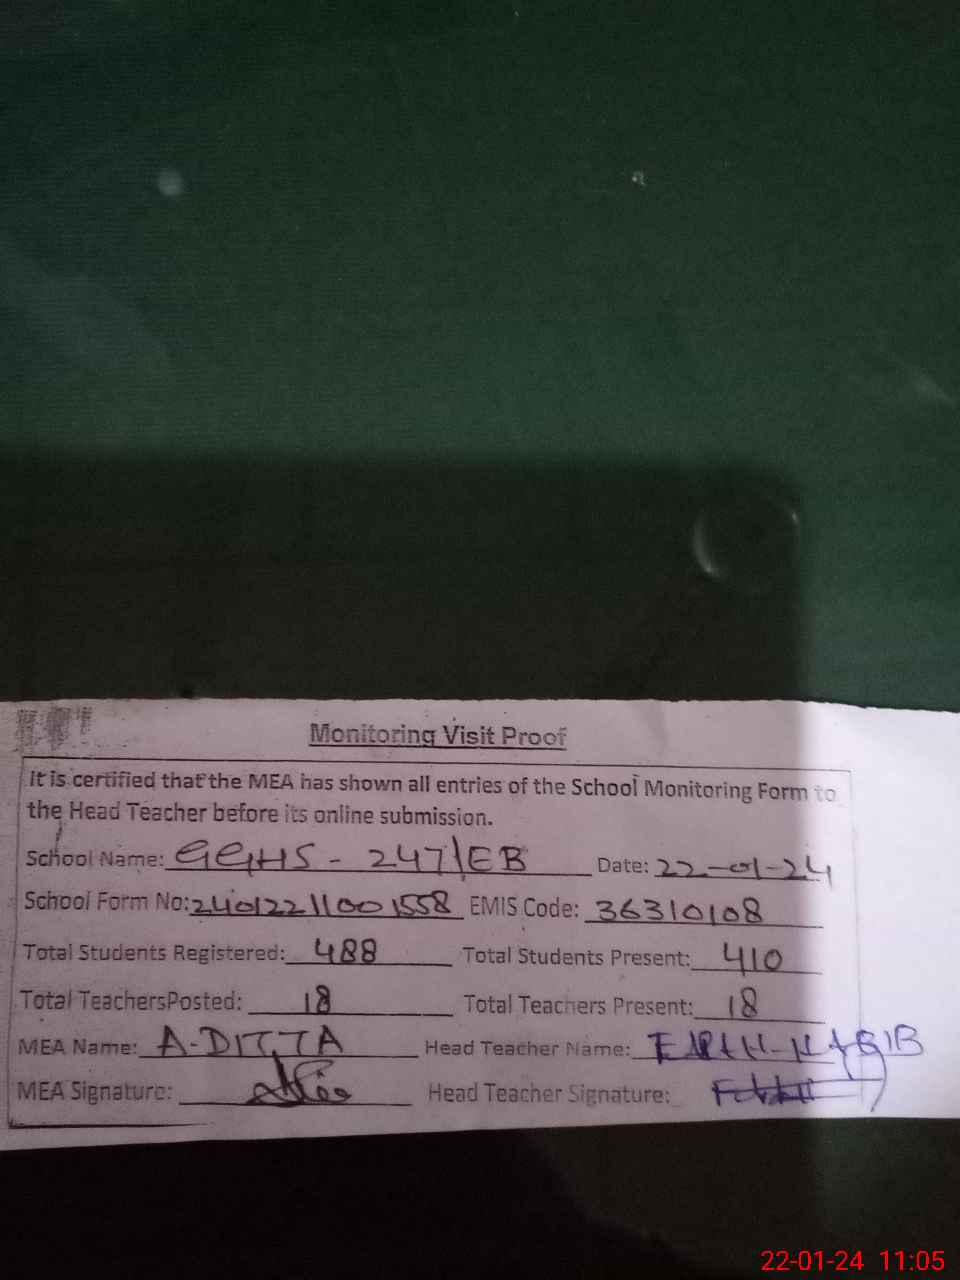 Monitoring Visit Proof
It is certified that the MEA has shown all entries of the School Monitoring Form to
the Head Teacher before its online submission.
School Name: GGHS - 247/EB Date: 22-01-24
School Form No: 2401221100 1558 EMIS Code: 36310108
Total Students Registered: 488 Total Students Present: 410
Total TeachersPosted: 18 Total Teachers Present: 18
MEA Name: A-DITTA Head Teacher Name:
MEA Signature: Head Teacher Signature:
22-01-24 11:05